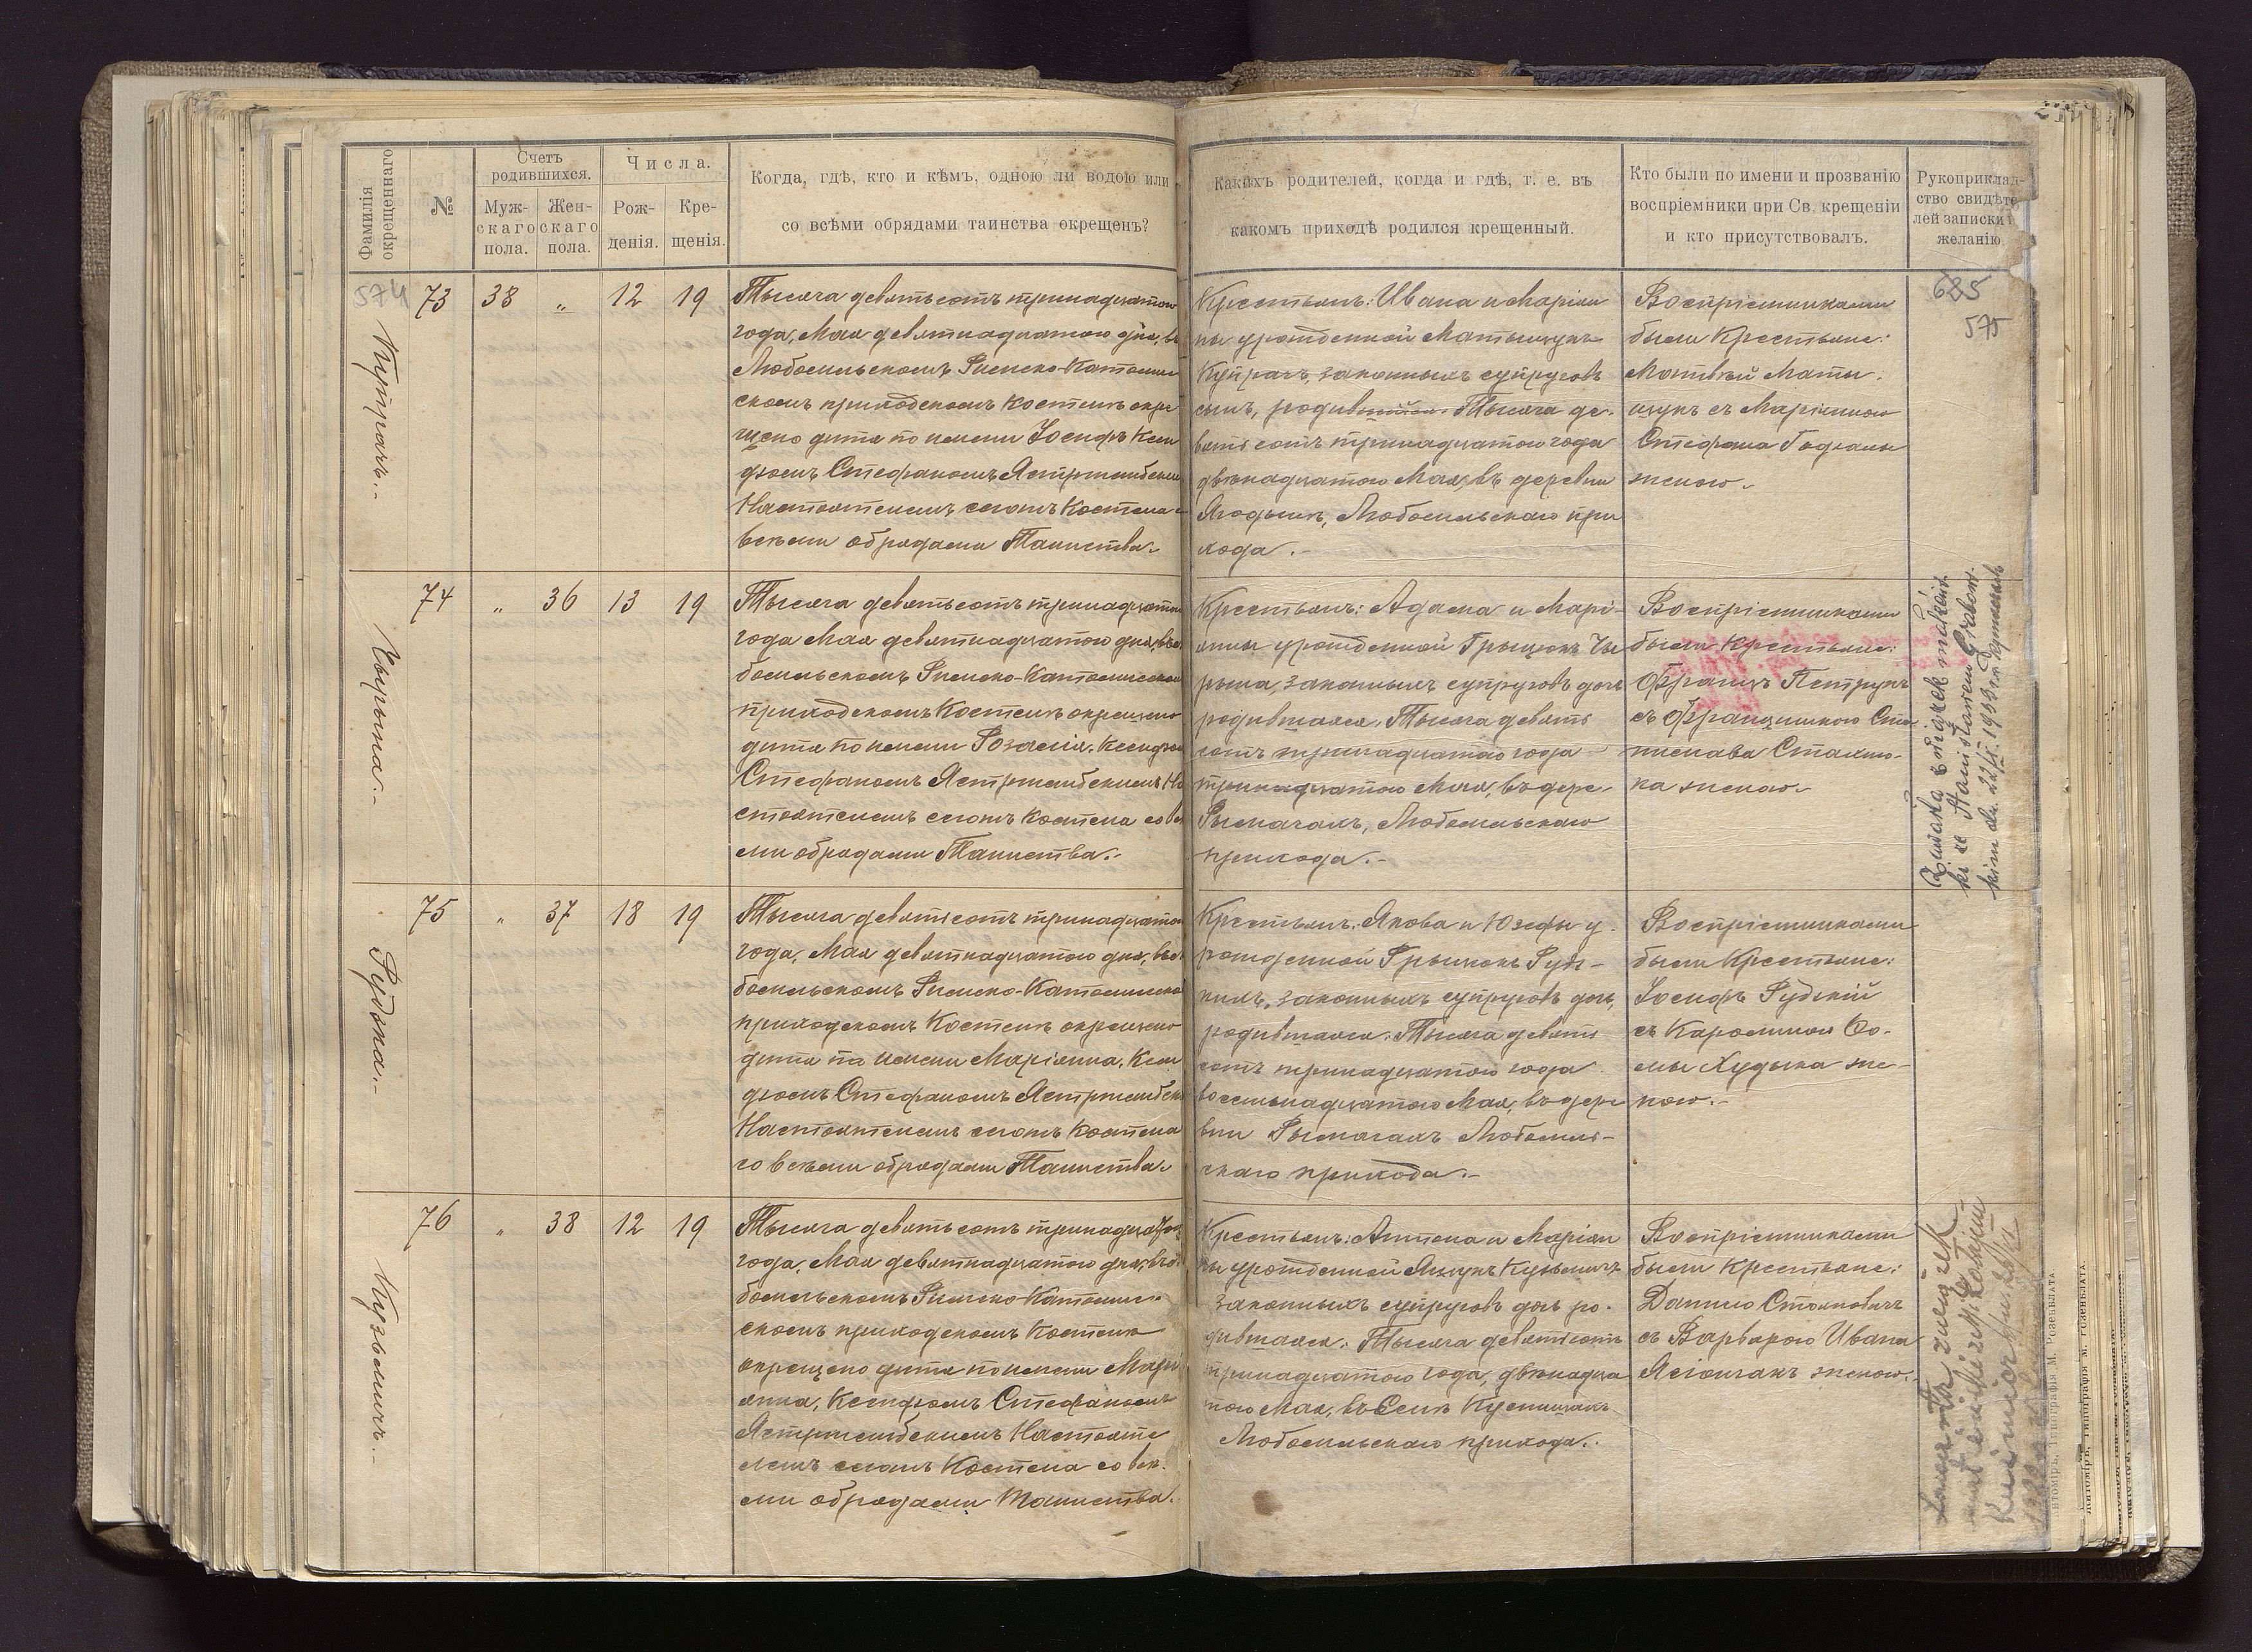 Фамилія окрещеннаго
№
Счетъ родившихся.
Муж-
скаго
пола.
Жен-
скаго
пола.
Числа.
Рож-
денія.
Кре-
щенія.
Когда, гдѣ, кто и кѣмъ, одною ли водою или
со всѣми обрядами таинства окрещенъ?
Какихъ родителей, когда и гдѣ, т. е. въ
какомъ приходѣ родился крещенный.
Кто были по имени и прозванію
воспріемники при Св. крещеніи
и кто присутствовалъ.
Рукоприклад-
ство свидѣте
лей записки
желанію
574
Купрачъ.-
73
38
„
12
19
Тысяча девятьсотъ тринадцатого
года, Мая девятнадцатого дня, въ
Любомльскомъ Римско-Католиче
скомъ приходскомъ Костелѣ окре
щено дитя по имени Іосифъ Ксен
дзомъ Стефаномъ Ястржембскимъ
Настоятелемъ сегожъ Костела
всѣми обрядами Таинства.-
Крестьянъ: Ивана и Маріан
ны урожденной Матыщукъ
Купрачъ, законныхъ супруговъ
сынъ, родившійся. Тысяча де-
вятьсотъ тринадцатого года
двѣнадцатого Мая, въ деревни
Ягодынѣ, Любомльскаго при
хода.-
Воспріемниками
были Крестьяне:
Матвѣй Маты-
щукъ съ Маріанною
Стефана
женою.-
685
575
Чырына.-
74
„
36
13
19
Тысяча девятьсотъ тринадцатого
года Мая девятнадцатого дня, въ
бомльскомъ Римско-Католическомъ
приходскомъ Костелѣ окрещено
дитя по имени Розалія, Ксендзом
Стефаномъ Ястржембскимъ На
стоятелемъ сегожъ Костела со всѣ
ми обрядами Таинства.-
Крестьянъ: Адама и Марі-
янны урожденной Грыцюкъ Чы
рына, законныхъ супруговъ дочь
родившаяся. Тысяча девять
сотъ тринадцатого года
тринадцатого Мая, въ дере-
Рымачахъ, Любомльскаго
прихода.-
Воспріемниками
были Крестьяне:
Францъ Петрукъ
съ Францишкою Ста
нислава
женою.-
Zawarła związek małżeń.
ki ze Stanisławem Grabow-
kim dn. 22/I. 1933 r.
Рудска.-
75
„
37
18
19
Тысяча девятьсотъ тринадцатого
года, Мая девятнадцатого дня, въ
бомльскомъ Римско-Католическо
приходскомъ Костелѣ окрещено
дитя по имени Маріянна, Ксен
дзомъ Стефаномъ Ястржембски
Настоятелемъ сегожъ Костела
со всѣми обрядами Таинства.
Крестьянъ: Якова и Юзефы у-
рожденной Грыцюкъ Руд-
скихъ, законныхъ супруговъ дочь,
родившаяся. Тысяча девять
сотъ тринадцатого года
восемнадцатого Мая, въ дере-
вни Рымачахъ Любомль-
скаго прихода.-
Воспріемниками
были Крестьяне:
Іосифъ Рудскій
съ Каролиною Ѳо-
мы Худыка же-
ною.-
Кузьмичъ.-
76
„
38
12
19
Тысяча девятьсотъ тринадцатого
года, Мая девятнадцатого дня, въ
бомльскомъ Римско-Католиче-
скомъ приходскомъ Костелѣ
окрещено дитя по имени Марі
янна, Ксендзомъ Стефаномъ
Ястржембскимъ Настояте
лемъ сегожъ Костела со всѣ-
ми обрядами Таинства.
Крестьянъ: Антона и Маріан
ны урожденной Ящукъ Кузьмичъ
законныхъ супруговъ дочь ро-
дившаяся. Тысяча девятьсотъ
тринадцатого года, двѣнадца
того Мая, въ Селѣ Куснищахъ
Любомльскаго прихода.-
Воспріемниками
были Крестьяне:
Данило Стояновичъ
съ Варварою Ивана
женою.-
Zawarła związek
małżeński z